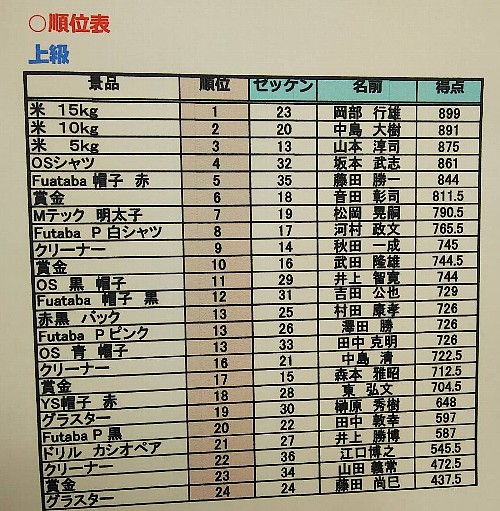 ○順位表
上級
景品 順位 ゼッケン 名前 得点
米 15kg 1 23 岡部 行雄 899
米 10kg 2 20 中島 大樹 891
米 5kg 3 13 山本 淳司 875
OSシャツ 4 32 坂本 武志 861
Fuataba 帽子 赤 5 35 藤田 勝一 844
賞金 6 18 音田 彰司 811.5
Mテック 明太子 7 19 松岡 晃嗣 790.5
Futaba P 白シャツ 8 17 河村 政文 765.5
クリーナー 9 14 秋田 一成 745
賞金 10 16 武田 隆雄 744.5
OS 黒 帽子 11 29 井上 智寛 744
Fuataba 帽子 黒 12 31 吉田 公也 729
赤黒 バック 13 25 村田 康孝 726
Futaba P ピンク 13 26 澤田 勝 726
OS 青 帽子 13 33 田中 克明 726
クリーナー 16 21 中島 清 722.5
賞金 17 15 森本 雅昭 712.5
YS帽子 赤 18 28 東 弘文 704.5
グラスター 19 30 榊原 秀樹 648
Futaba P 黒 20 22 田中 敦幸 597
ドリル カシオペア 21 27 井上 勝博 587
クリーナー 22 36 江口博之 545.5
賞金 23 34 山田 義常 472.5
グラスター 24 24 藤田 尚巳 437.5